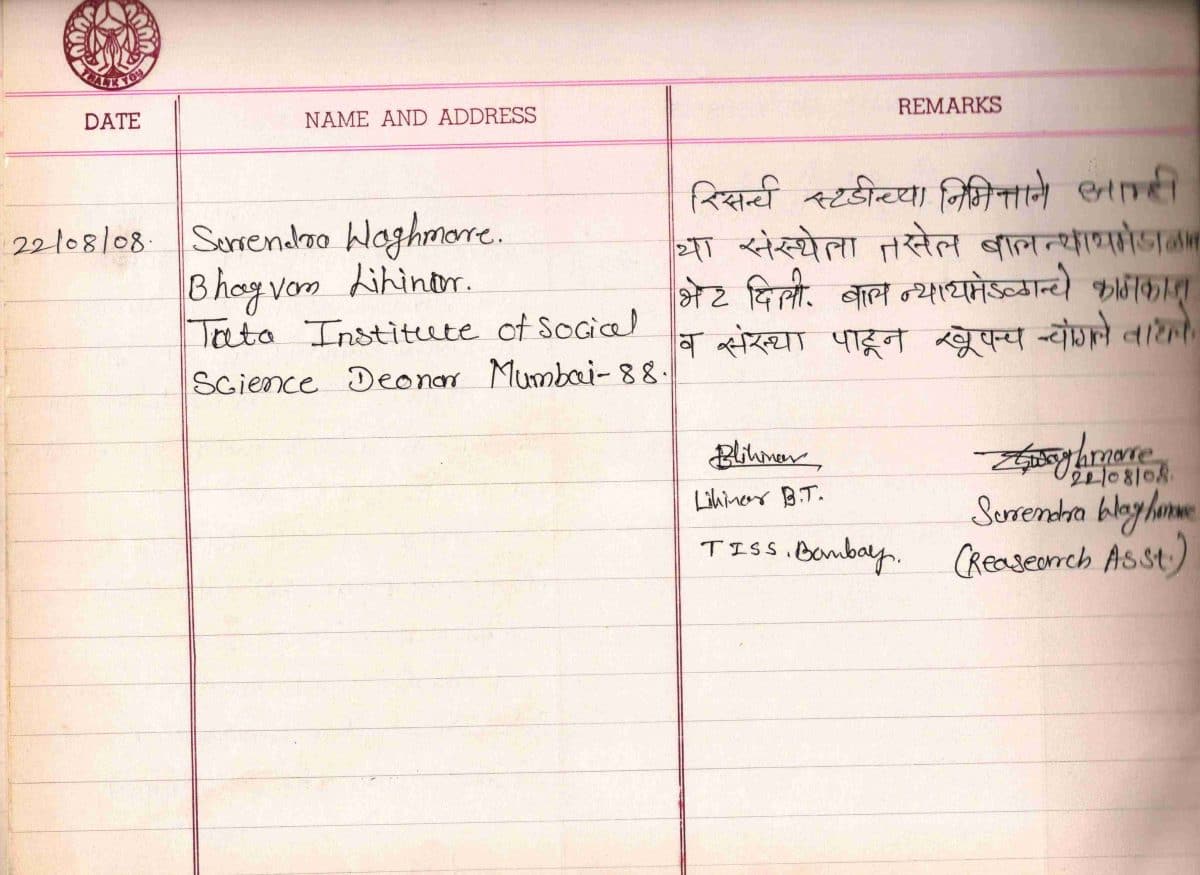 THANK YOU
DATE
NAME AND ADDRESS
REMARKS
22/08/08.
Surendra Waghmare.
Bhagvan Lihinar.
Tata Institute of Social
Science Deonar Mumbai-88.
रिसर्च स्टडीच्या निमित्ताने आम्ही
या संस्थेला तसेच बाल न्यायमंडळास
भेट दिली. बाल न्यायमंडळाचे कामकाज
व संस्था पाहून खूपच चांगले वाटले.
Blihinar
Lihinar B.T.
TISS, Bombay.
Swaghmare
22/08/08.
Surendra Waghmare
(Reasearch Asst.)